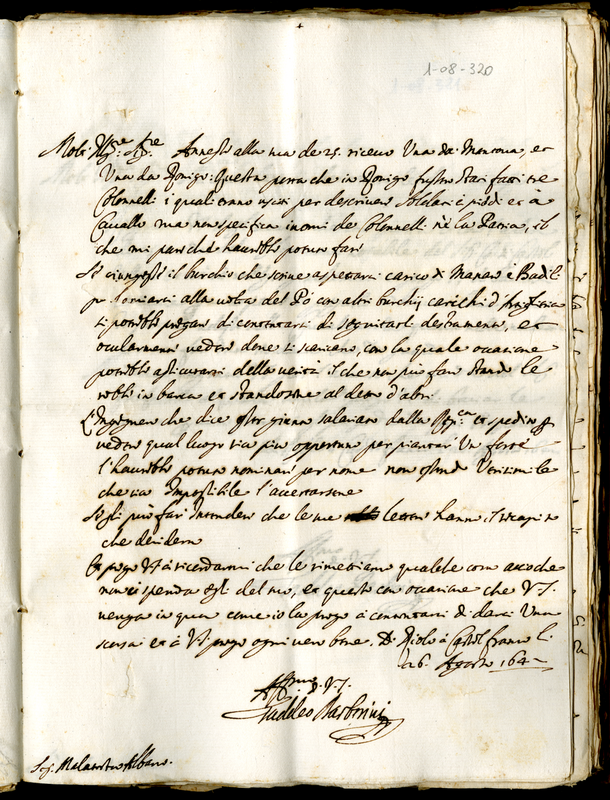 1-08-320
Annesso alla sua de 25. ricevo Una da Mantova, et
Una da Rovigo: Questa porta che in Rovigo stati fatti tre
Colonnelli i quali erano usciti per descriver Soldati à piedi et à
Cavallo ma non specifica i nomi de Colonnelli nè la Patria, il
che mi par che haurebbe potuto fare
Se giungesse il burchio che scrive aspettarsi carico di
p tornarsi alla volta del Pò con altri burchij carichi d'
si potrebbe pregar di contentarsi di seguitarli destramente, et
ocularmente veder dove si scaricano, con la quale occasione
potrebbe assicurarsi della verità il che non può fare stando le
robbe in barca et standosene al detto d'altri
L'Ingegnier che dice esser salariato dalla et spedito p
veder qual luogo sia più opportuno per piantar Un forte
l'haurebbe potuto nominar per nome non essendo Verisimile
che sia Impossibile l'accertarsene
Se gli può far Intender che le sue lettere hanno il recapito
che desidera
Et prego VS à ricordarmi che le rimettiamo qualche cosa acciò che
non vi spenda egli del suo, et questo con occasione che V.S.
venga in qua come io la prego à contentarsi di dare Una
scorsa et à VS prego ogni vero bene. Di à Castel franco li
26. Agosto 164
Aff.mo di V.S.
Taddeo Barberini
Sig. Malatesta Albani.